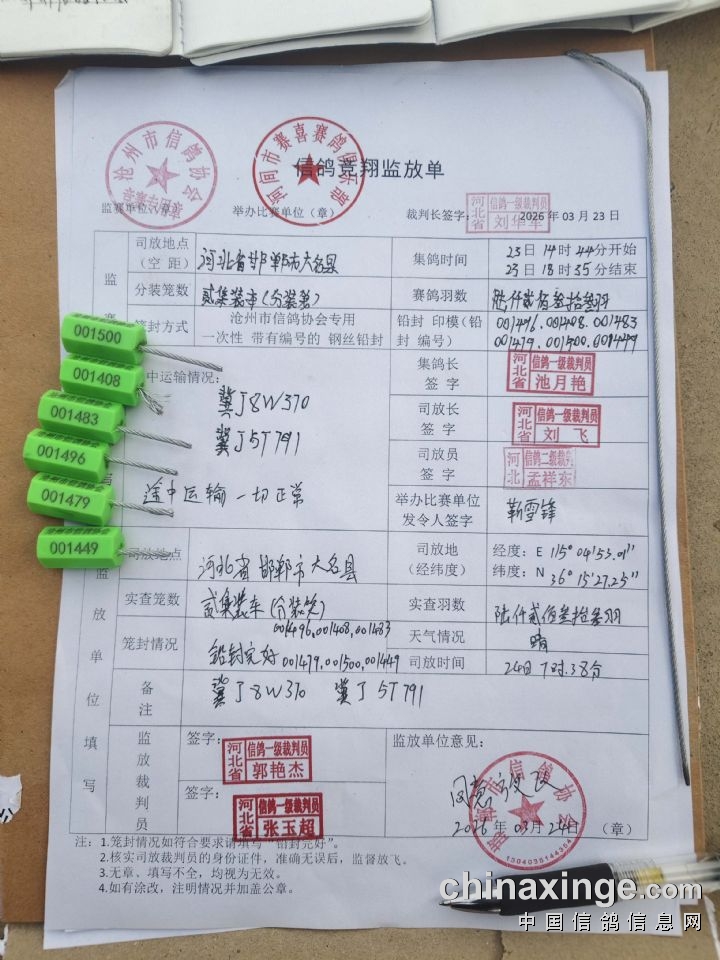 信鸽竞翔监放单
沧州市信鸽协会
河间市赛喜赛鸽俱乐部
监赛单位(章)
举办比赛单位(章)
裁判长签字:
河北省 信鸽一级裁判员 刘华军
2026年 03 月 23 日
司放地点(空 距)
河北省邯郸市大名县
集鸽时间
23日14时44分开始
23日18时35分结束
分装笼数
贰集装车(分装笼)
赛鸽羽数
陆仟贰佰叁拾叁羽
笼封方式
沧州市信鸽协会专用
一次性 带有编号的 钢丝铅封
铅封 印模(铅封 编号)
001496.001408.001483
001479.001500.001449
监
赛
001500
001408
001483
001496
001479
001449
中运输情况:
冀J8W370
冀J5T791
途中运输一切正常
集鸽长签 字
河北省 信鸽一级裁判员 池月艳
司放长签 字
河北省 信鸽一级裁判员 刘飞
司放员签 字
河北 信鸽二级裁判 孟祥东
举办比赛单位发令人签字
靳雪锋
监放单位填写
司放地点
河北省邯郸市大名县
司放地(经纬度)
经度:E 115°04'53.01"
纬度:N 36°15'27.25"
实查笼数
贰集装车(分装笼)
实查羽数
陆仟贰佰叁拾叁羽
笼封情况
001496,001408,001483
铅封完好 001479,001500,001449
天气情况
晴
司放时间
24日7时38分
备注
冀J8W370 冀J5T791
监放裁判员
签字:
河北省 信鸽一级裁判员 郭艳杰
签字:
河北省 信鸽一级裁判员 张玉超
监放单位意见:
同意放飞
市信鸽协会
2026年03月24日 (章)
注: 1.笼封情况如符合要求请填写"铅封完好"。
2.核实司放裁判员的身份证件,准确无误后,监督放飞。
3.无章、填写不全,均视为无效。
4.如有涂改,注明情况并加盖公章。
chinaxinge.com
中国信鸽信息网